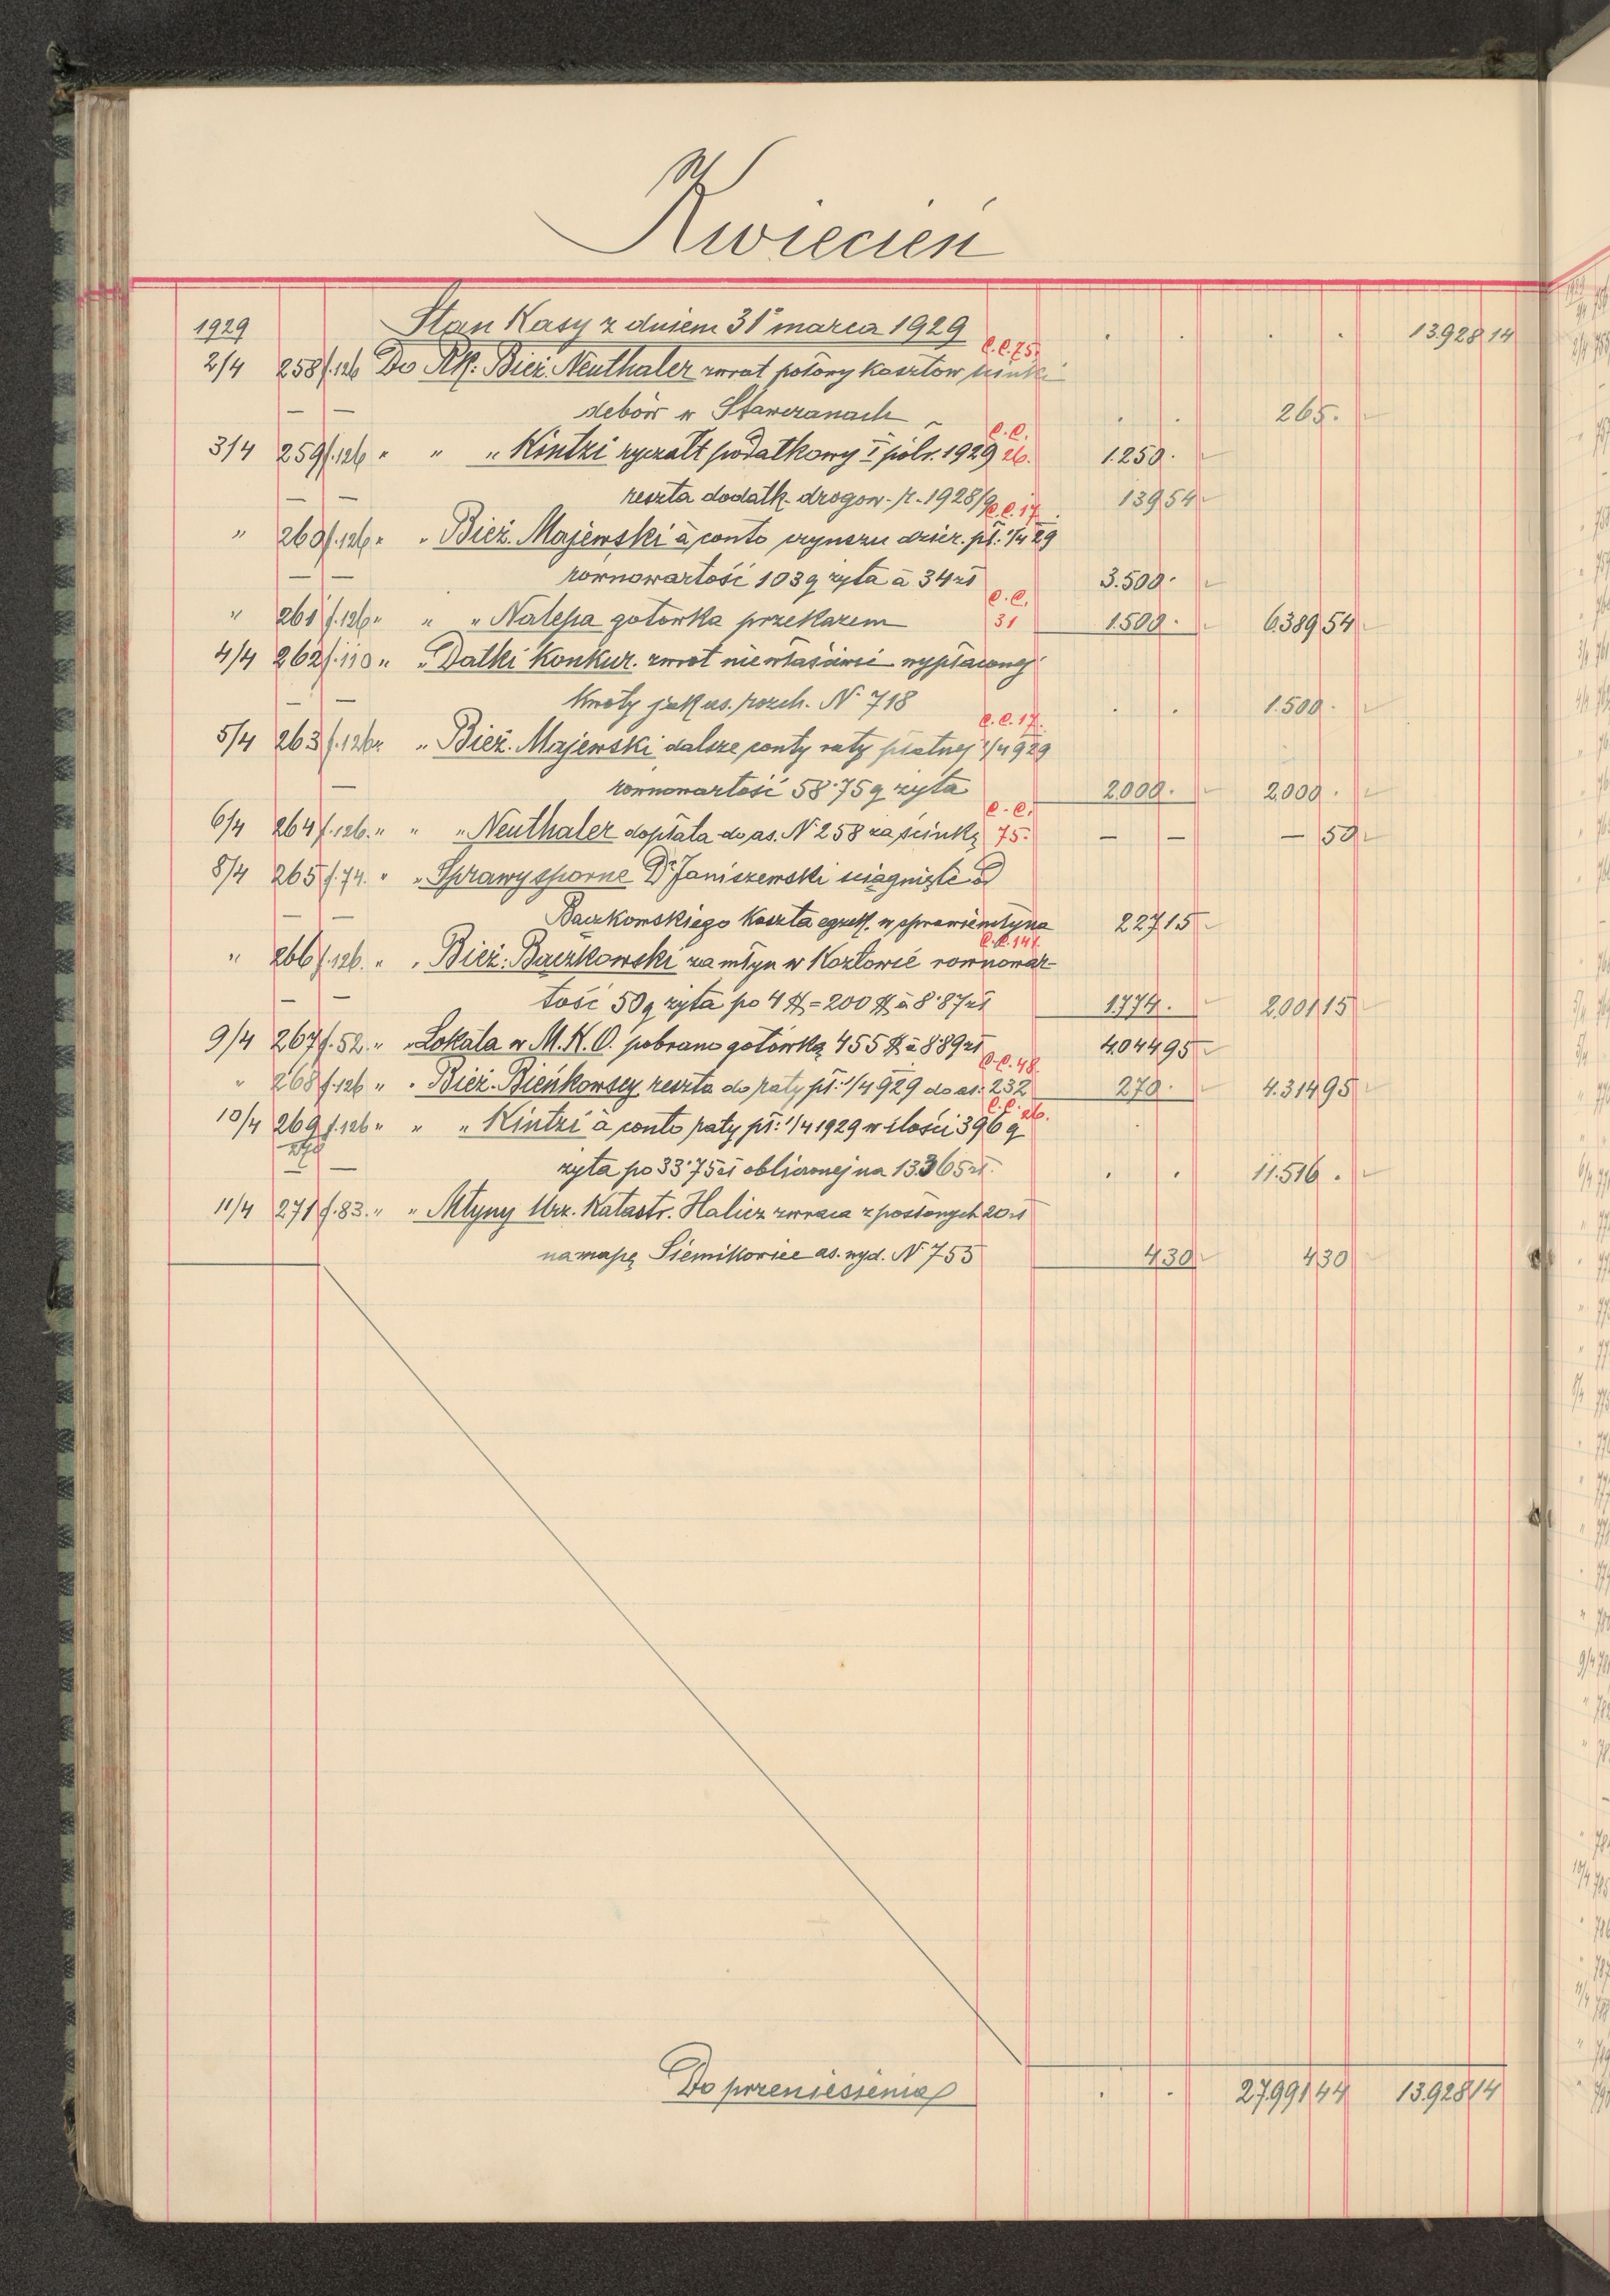 Kwiecień
1929 Stan Kasy z dniem 31º marca 1929 . . . . 13.928 14
C.C.75.
2/4 258 f.126 Do Rk. Bież. Neuthaler zwrot połowy kosztów ścinki
— — dębów w Stawczanach . . 265.
C.C.
3/4 259 f.126 " " " Kintzi ryczałt podatkowy I półr. 1929 26. 1.250.
— — reszta dodatk. drogow. r. 1928/9 139 54
C.C.17.
" 260 f.126 " " Bież. Majewski à conto czynszu dzier. pł: 1/4 29
— — równowartość 103 q żyta à 34 zł 3.500.
C.C.
" 261 f.126 " " " Nalepa gotówka przekazem 31 1.500. 6.389 54
4/4 262 f.110 " " Datki Konkur. zwrot niewłaściwie wypłaconej
— — kwoty jak as. rozch. N. 718 . . 1.500.
C.C.17.
5/4 263 f.126 " " Bież. Majewski dalsze conty raty płatnej 1/4 929
— równowartość 58.75 q żyta 2.000. 2.000.
C.C.
6/4 264 f.126. " " " Neuthaler dopłata do as. N 258 za ścinkę 75. — — — 50
8/4 265 f.74. " " Sprawy sporne Dr Janiszewski ściągnięte od
— — Baczkowskiego Koszta egzek. w sprawie młyna 227 15
C.C.141.
" 266 f.126. " " Bież. Baczkowski za młyn w Kozłowie równowar-
— — tość 50 q żyta po 4 $ = 200 $ à 8.87 zł 1.774. 2.001 15
9/4 267 f.52. " " Lokata w M.K.O. pobrano gotówką 455 $ à 8.89 zł 4.044 95
C.C.48.
" 268 f.126 " " Bież. Bieńkowscy reszta do raty pł: 1/4 929 do as. 232 270. 4.314 95
C.C. 26.
10/4 269 f.126 " " " Kintzi à conto raty pł: 1/4 1929 w ilości 396 q
— — żyta po 33.75 zł obliczonej na 13365 zł. . . 11.516.
11/4 271 f.83. " " Młyny Urz. Katastr. Halicz zwraca z posłanych 20 zł
na mapę Siemikowice as. wyd. N 755 4 30 4 30
Do przeniesienia . . 27.991 44 13.928 14